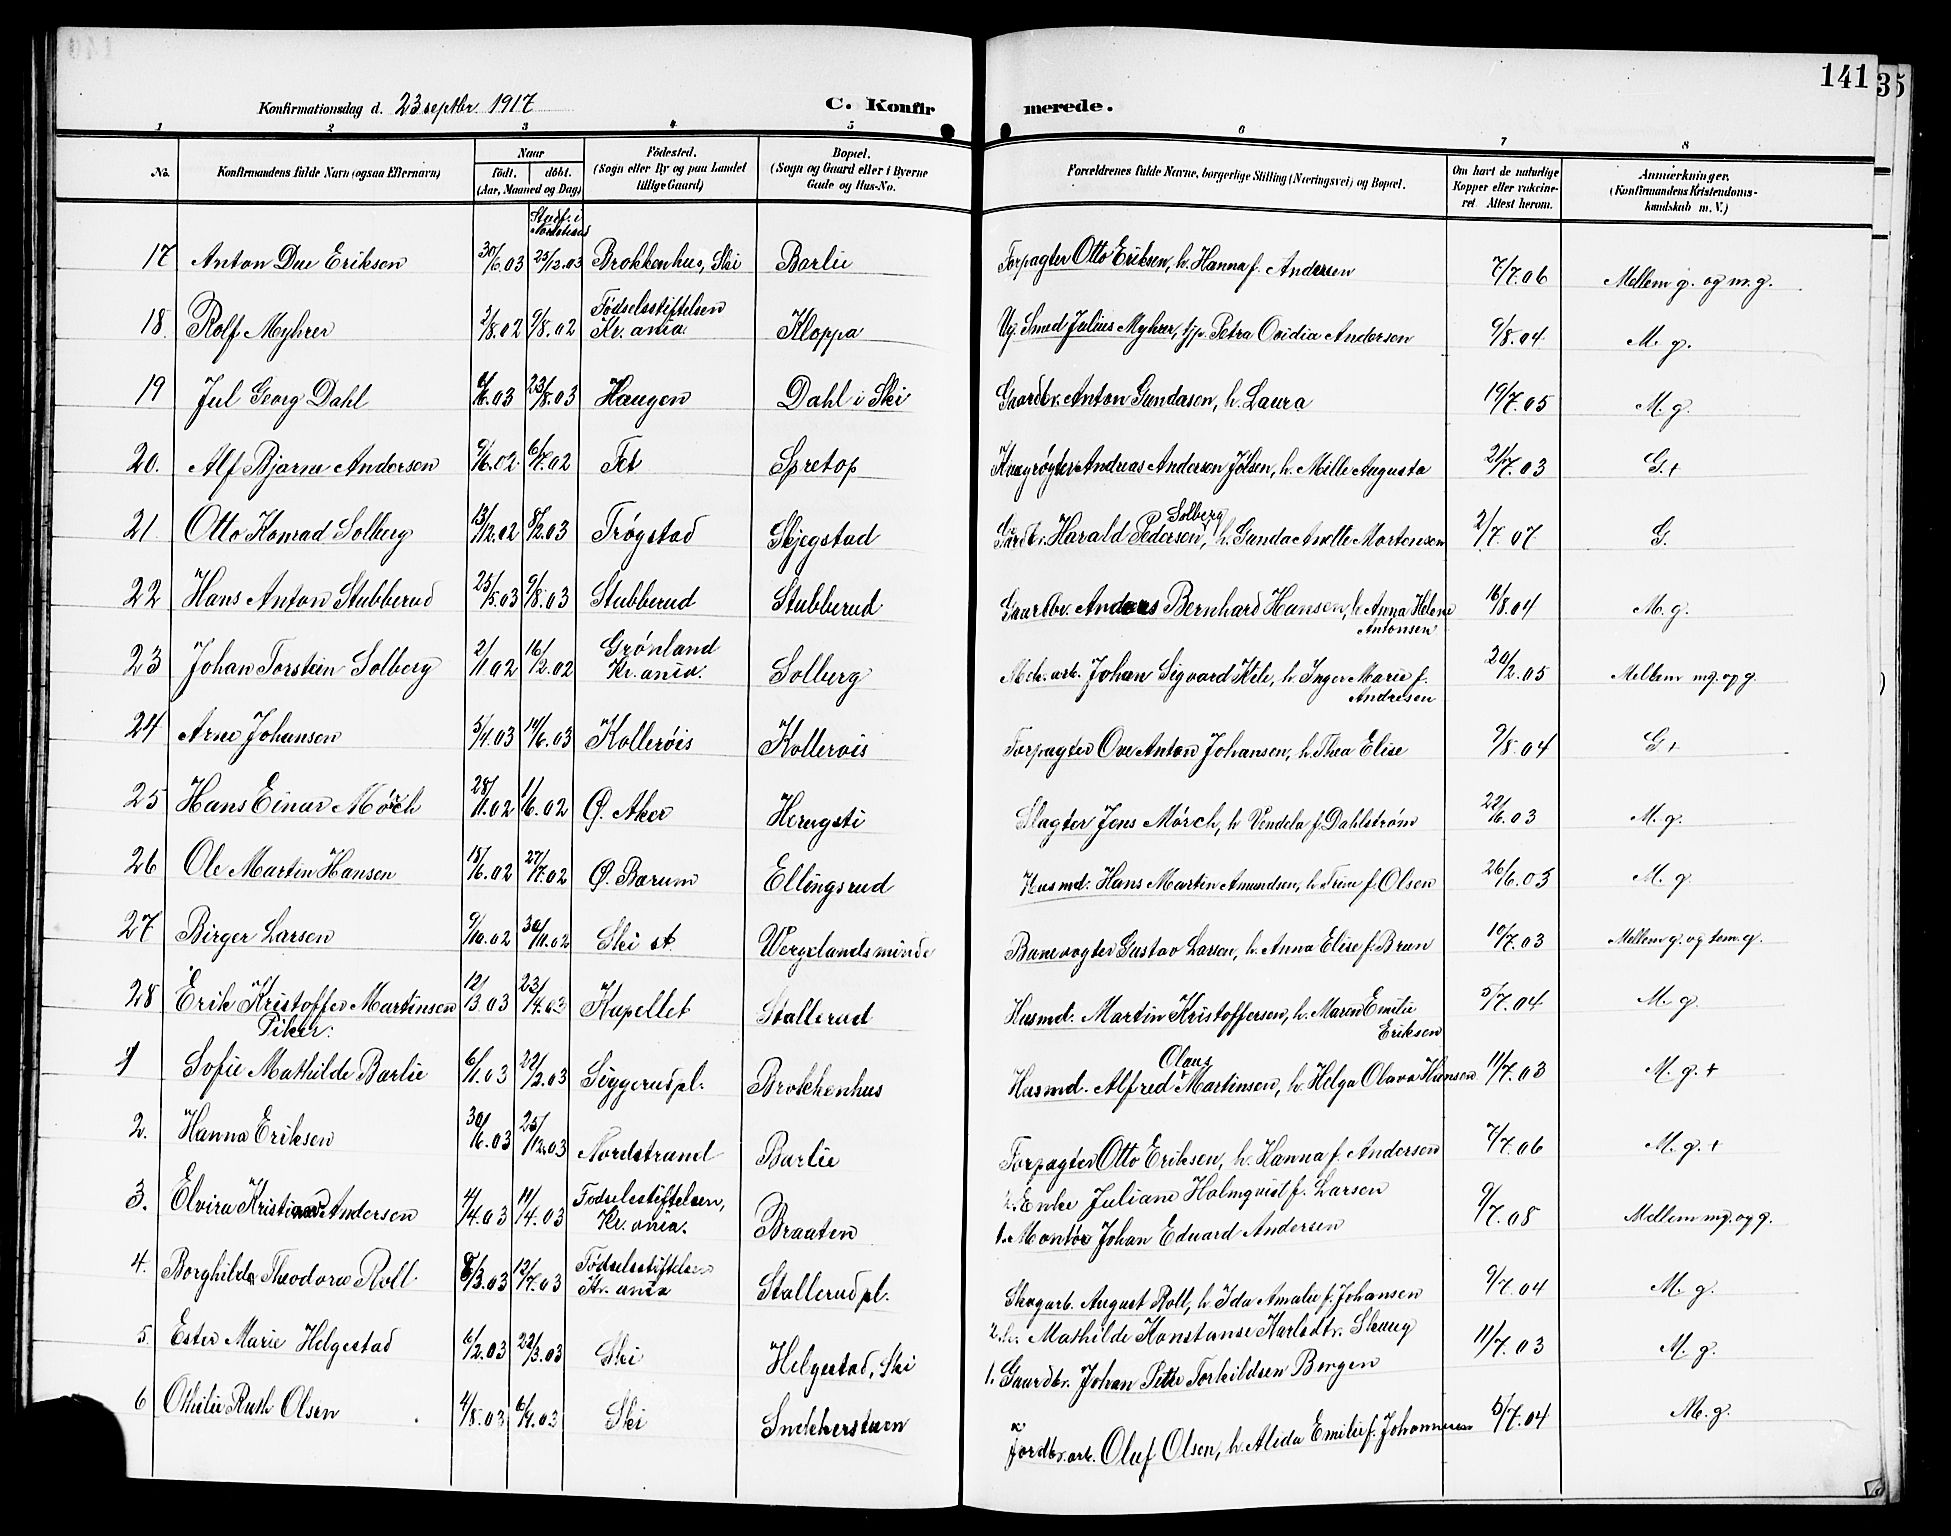 141
35
Konfirmationsdag d. 23 septbr. 1917
C. Konfir merede.
1 2 3 4 5 6 7 8
No.
Konfirmandens fulde Navn (ogsaa Efternavn)
Naar
født. døbt.
(Aar, Maaned og Dag)
Fødested.
(Sogn eller By og paa Landet
tillige Gaard)
Bopæl.
(Sogn og Gaard eller i Byerne
Gade og Hus-No.
Forældrenes fulde Navne, borgerlige Stilling (Næringsvei) og Bopæl.
Om havt de naturlige
Kopper eller vakcine-
ret Attest herom.
Anmærkninger.
(Konfirmandens Kristendoms-
kundskab m. V.)
17 Anton Due Eriksen 30/6.03 25/12.03 Brokkenhus, Ski Barlie Forpagter Otto Eriksen, h. Hanna f. Andersen 7/7.06 Mellem g. og m.g.
18. Rolf Myhrer 3/8.02 9/8.02 Fødselsstiftelsen Kr.ania Kloppa Ug. Smed Julius Myhrer, Petra Ovidia Andersen 9/8.04 M. g.
19 Jul Georg Dahl 6/6.03 23/8.03 Haugen Dahl i Ski Gaardbr. Anton Gundasen, h. Laura 19/7.05 M. g.
20. Alf Bjarne Andersen 9/6.02 6/7.02 Fet Spretop Andreas Andersen Jølsen, h. Mille Augusta 21/7.03 G.+
21 Otto Konrad Solberg 13/12.02 8/2.03 Trøgstad Skjegstad Gårdbr. Harald Pedersen Solberg, h. Gunda Anette Mortensen 2/7.07 G.
22 Hans Anton Stubberud 25/5.03 9/8.03 Stubberud Stubberud Gaardbr. Anders Bernhard Hansen, h. Anna Helene Antonsen 16/8.04 M. g.
23 Johan Torstein Solberg 2/11.02 16/12.02 Grønland Kr.ania. Solberg Johan Sigvard Kile, h. Inger Marie f. Andresen 20/2.05 Mellem mg. og g.
24 Arne Johansen 5/4.03 14/6.03 Kollerøis Kollerøis Forpagter Ove Anton Johansen, h. Thea Elise 9/8.04 G +
25 Hans Einar Mörch 28/11.02 1/6.02 Ø. Aker Herugsti Slagter Jens Mörch, h. Vendela f. Dahlstrøm 22/6.03 M. g.
26 Ole Martin Hansen 18/6.02 27/7.02 Ø. Bærum Ellingsrud Husmd. Hans Martin Amundsen, h. Trine f. Olsen 26/6.03 M. g.
27 Birger Larsen 9/10.02 30/11.02 Ski st. Vergelandsminde Banevogter Gustav Larsen, h. Anna Elise f. Brun 10/7.03 Mellem g. og tem.g.
28 Erik Kristoffer Martinsen 12/3.03 23/4.03 Kapellet Stallerud Husmd. Martin Kristoffersen, h. Maren Emilie Eriksen 5/7.04 M. g.
Piker.
1 Sofie Mathilde Barlie 6/1.03 22/2.03 Siggerudpl. Brokkenhus Husmd. Alfred Olaus Martinsen, h. Helga Olava Hansen 11/7.03 M. g. +
2. Hanna Eriksen 30/6.03 25/12.03 Nordstrand Barlie Forpagter Otto Eriksen, h. Hanna f. Andersen 7/7.06 M. g. +
3. Elvira Andersen 4/4.03 11/4.03 Fødselsstiftelsen, Kr.ania. Braaten 2. Enke Juliane Holmqvist f. Larsen
1. Montör Johan Eduard Andersen 9/7.08 Mellem mg. og g.
4. Borghilda Theodora Roll 8/3.03 12/7.03 Fødselsstiftelsen Kr.ania Stallerudpl. Skogarb. August Roll, h. Ida Amalie f. Johansen 9/7.04 M. g.
5. Ester Marie Helgestad 6/2.03 22/3.03 Ski Helgestad, Ski 2. h. Mathilde Konstanse Karlsdtr. Skaug
1. Gaardbr. Johan Torkildsen Bergen 11/7.03 M. g.
6 Othilie Ruth Olsen 4/8.03 Ski Snekkerstuen Jordbr. arb. Oluf Olsen, h. Alida Emilie f. Johannesen 5/7.04 M. g.